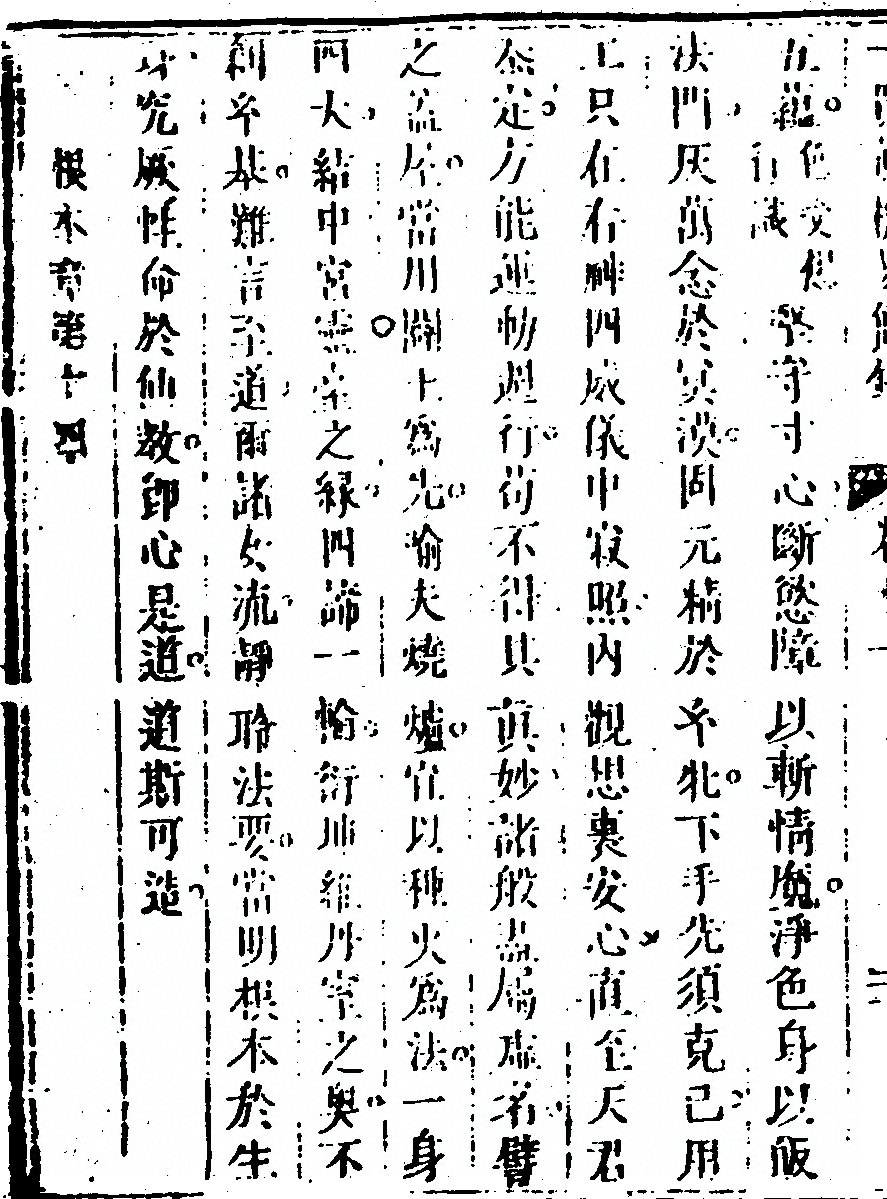 五蘊色受想行識堅守寸心斷慾障以斬情魔淨色身以皈
法門灰萬念於冥漠固元精於牝下手先須克己用
工只在存神四威儀中寂照內觀想裏安心直至天君
泰定方能運動週行苟不得其真妙諸般盡屬虛名譬
之蓋屋當用開土為先喻夫燒爐宜以種火為法一身
四大結中宮靈室之緣四諦一輪衍坤維丹室之奧不
創基難言至道爾諸女流靜聆法要當明根本於生
身究厥性命於仙教即心是道道斯可造
根本章第十四